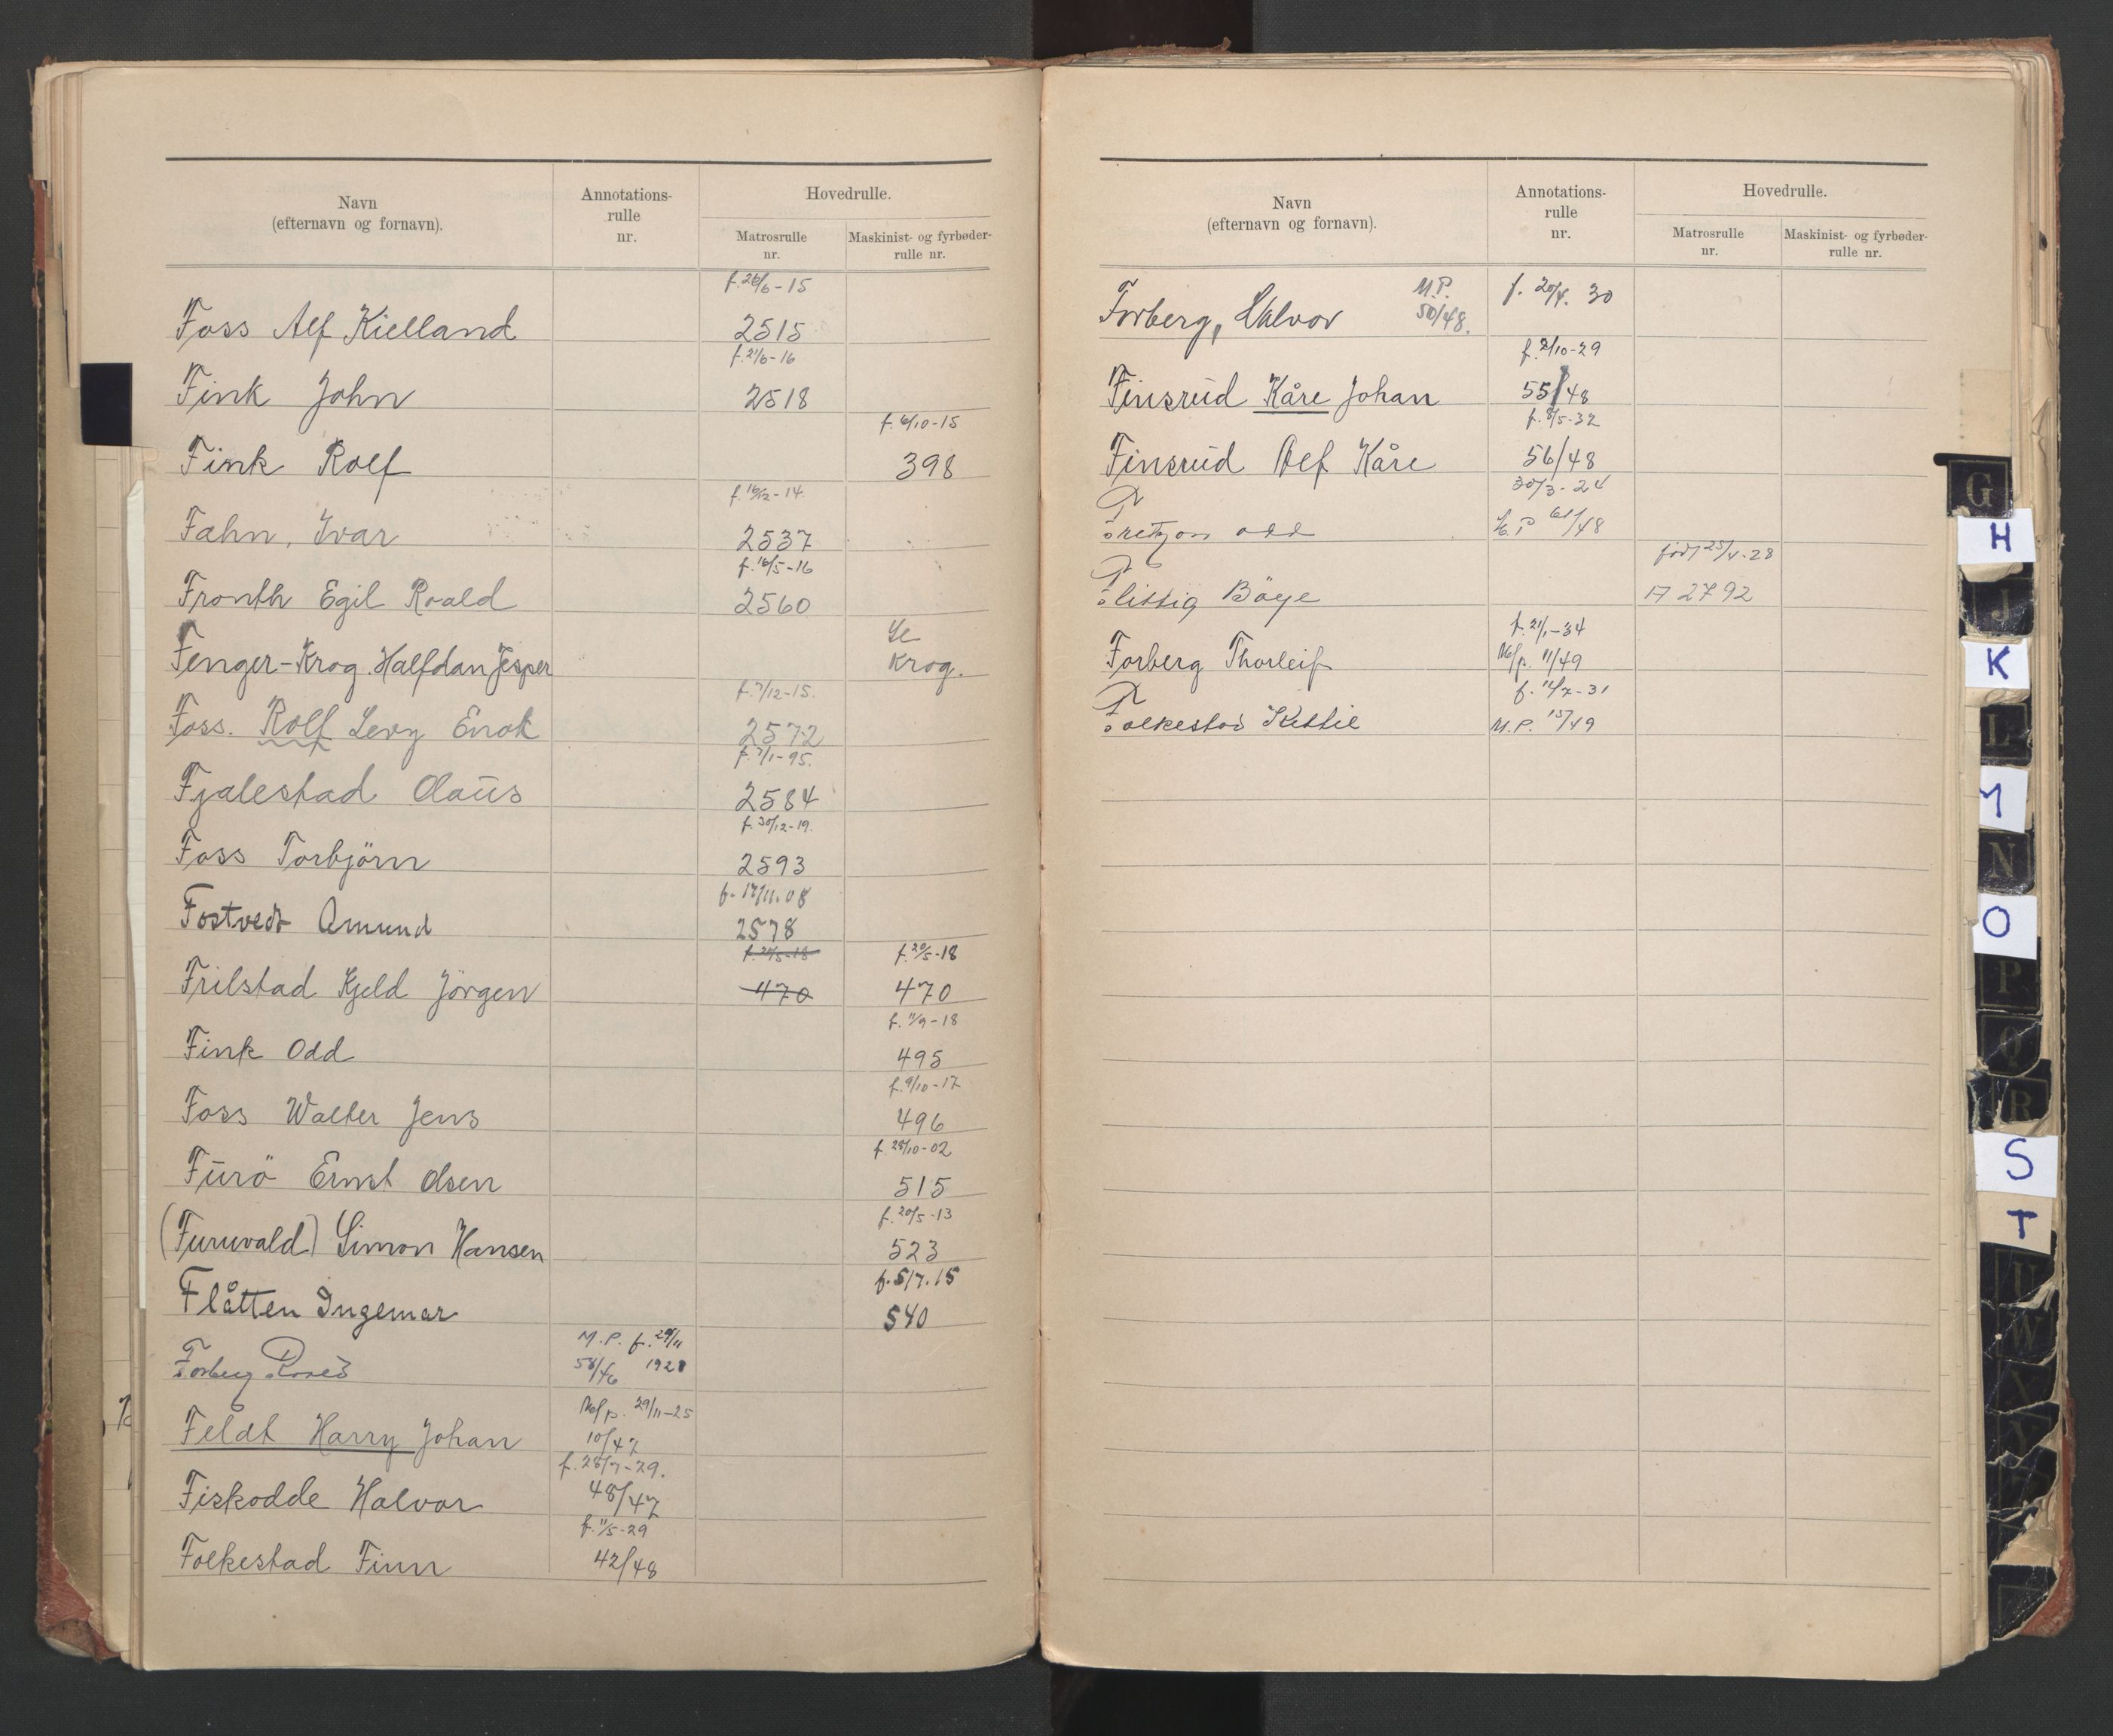 Navn
(efternavn og fornavn).
Annotations-
rulle
nr.
Hovedrulle.
Matrosrulle
nr.
Maskinist- og fyrbøder-
rulle nr.
f. 26/6-15
Foss Alf Kielland 2515
f. 21/6-16
Fink John 2518
f. 6/10-15
Fink Rolf 398
f. 16/12-14.
Fæhn, Ivar 2537
f. 16/5-16
Fronth Egil Roald 2560
Se
Fenger-Krog. Halfdan Jesper Krog.
f. 7/12-15.
Foss. Rolf Levy Enok 2572
f. 7/1-95.
Fjalestad Olaus 2584
f. 30/12-19.
Foss Torbjörn 2593
f. 17/11.08
Fostvedt Amund 2578
f. 20/5-18 f. 20/5-18
Frilstad Kjeld Jörgen 470 470
f. 11/9-18
Fink Odd 495
f. 9/10-17
Foss Walter Jens 496
f. 28/10-02
Furö Ernst Olsen 515
f. 20/5-13
(Furuvald) Simon Hansen 523
f. 5/7.15
Flåtten Ingemar 540
M.P. f. 29/11
Forberg 58/46 1928
M/p. 29/11-25
Feldt Harry Johan 10/47
f. 28/7-29.
Fiskodde Halvor 48/47
f. 11/5-29
Folkestad Finn 42/48
Navn
(efternavn og fornavn).
Annotations-
rulle
nr.
Hovedrulle.
Matrosrulle
nr.
Maskinist- og fyrbøder-
rulle nr.
M.P. f. 20/4. 30
Forberg, Halvor 50/48.
f. 2/10-29
Finsrud Kåre Johan 55/48
f. 8/5-32
Finsrud Alf Kåre 56/48
30/3-24
Odd 61/48
født 25/4-28
Flittig Böye A 2792
f. 21/1-34
Forberg Thorleif M/p. 11/49
f. 12/7-31
Folkestad Kittil M.P. 157/49
G
H
J
K
L
M
N
O
P
Q
R
S
T
U
W
X
Y